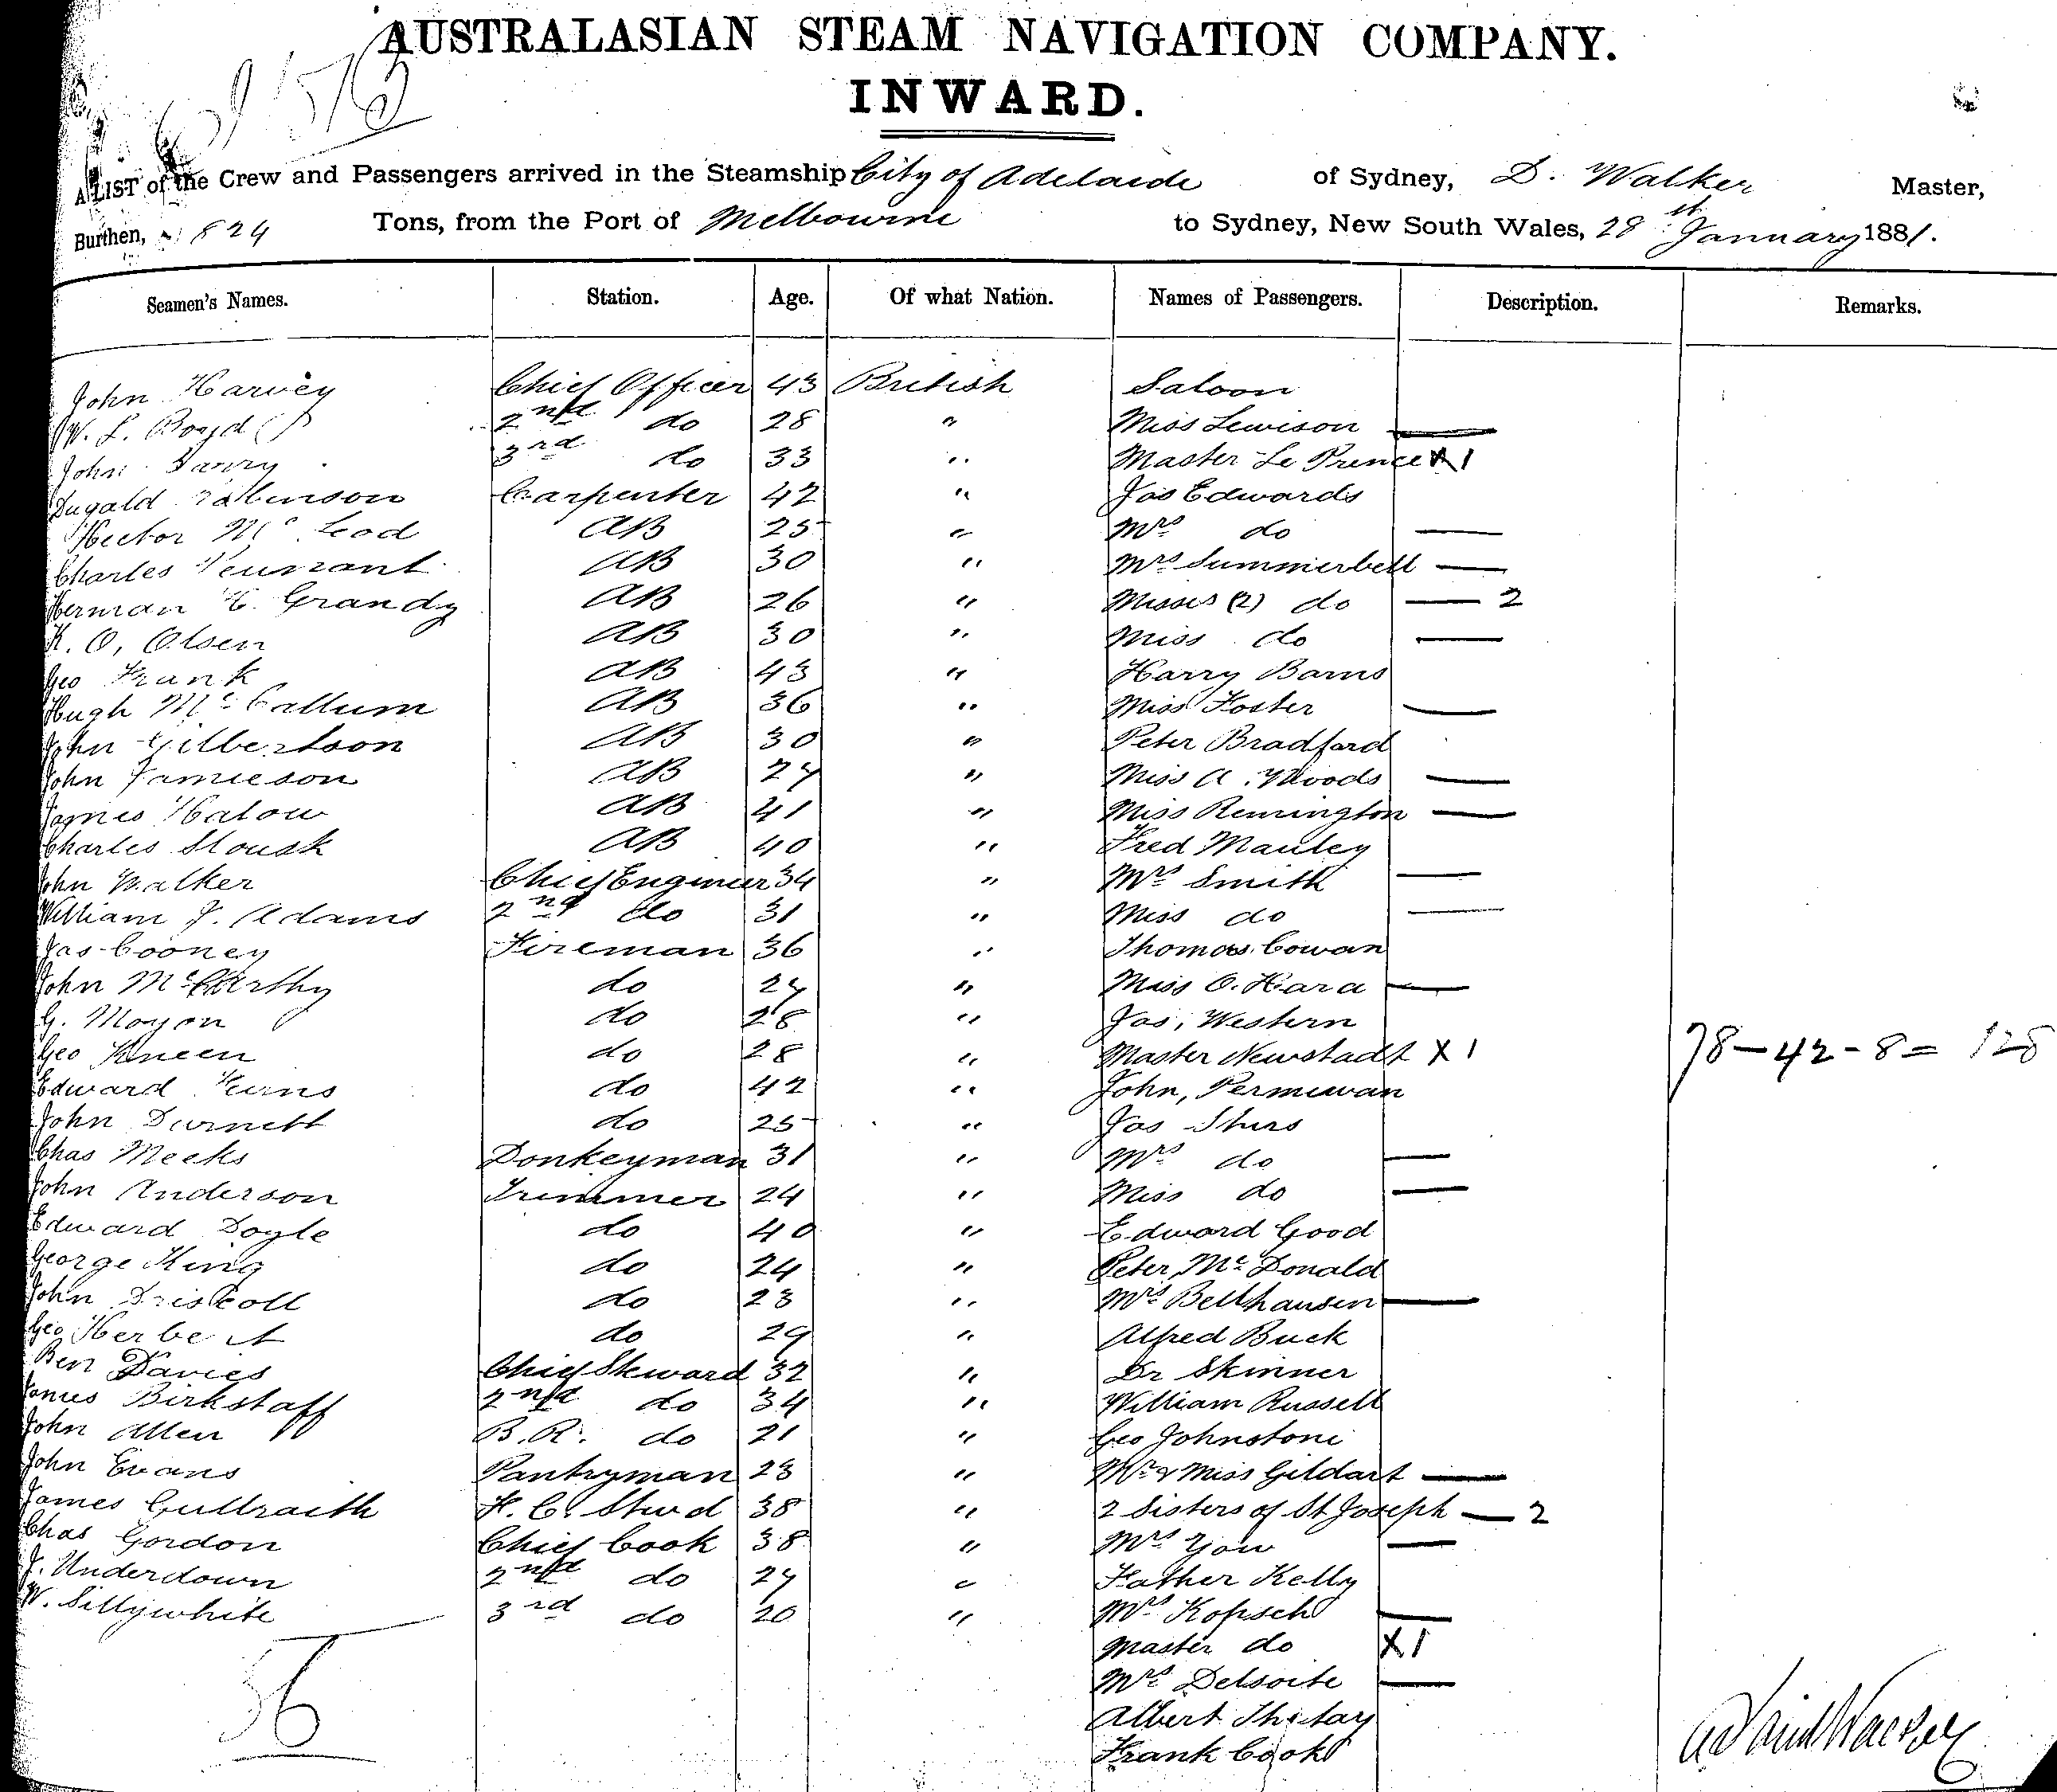 AUSTRALASIAN STEAM NAVIGATION COMPANY.
INWARD.
A LIST of the Crew and Passengers arrived in the Steamship City of Adelaide of Sydney, D. Walker Master,
Burthen, 824 Tons, from the Port of Melbourne to Sydney, New South Wales, 28 January 1881.
Seamen's Names. Station. Age. Of what Nation. Names of Passengers. Description. Remarks.
John Harvey Chief Officer 43 British Saloon
W. L. Boyd 2nd do 28 " Miss Lewison —
John 3rd do 33 " Master Le Prence X 1
Dugald Carpenter 42 " Jas Edwards
Hector Mc Leod AB 25 " Mrs do —
Charles AB 30 " Mrs Summerbell —
Herman C. Grandy AB 26 " Misses (2) do — 2
K. O. Olsen AB 30 " Miss do —
Geo Frank AB 43 " Harry Barns
Hugh Mc Callum AB 36 " Miss Foster —
John Gilbertson AB 30 " Peter Bradford
John Jamieson AB 27 " Miss A. Woods —
James Hatow AB 41 " Miss Remington —
Charles AB 40 " Fred Manley
John Walker Chief Engineer 34 " Mrs Smith —
William J. Adams 2nd do 31 " Miss do —
Jas Cooney Fireman 36 " Thomas Cowan
John McCarthy do 27 " Miss O. Hara —
G. Moyon do 28 " Jas, Western
Geo Kneen do 28 " Master Newstadt X 1 78 — 42 - 8 = 128
Edward do 42 " John, Permewan
John Durnett do 25 " Jas
Chas Meeks Donkeyman 31 " Mrs do —
John Anderson Trimmer 24 " Miss do —
Edward Doyle do 40 " Edward Good
George King do 24 " Peter Mc Donald
John Driscoll do 23 " Mrs Belthausen —
Geo Herbert do 29 " Alfred Buck
Ben Davies Chief Steward 32 " Dr Skinner
James Birkstaff 2nd do 34 " William Russell
John Allen B. R. do 21 " Geo Johnstone
John Evans Pantryman 23 " Mr & Miss Gildart —
James Gullraith F. C. Stwd 38 " 2 Sisters of St Joseph — 2
Chas Gordon Chief Cook 38 " Mrs Yow —
J. Underdown 2nd do 27 " Father Kelly
W. Sillywhite 3rd do 20 " Mrs Kopsch —
Master do X 1
36 Mrs Delsoite —
Albert
Frank Cook